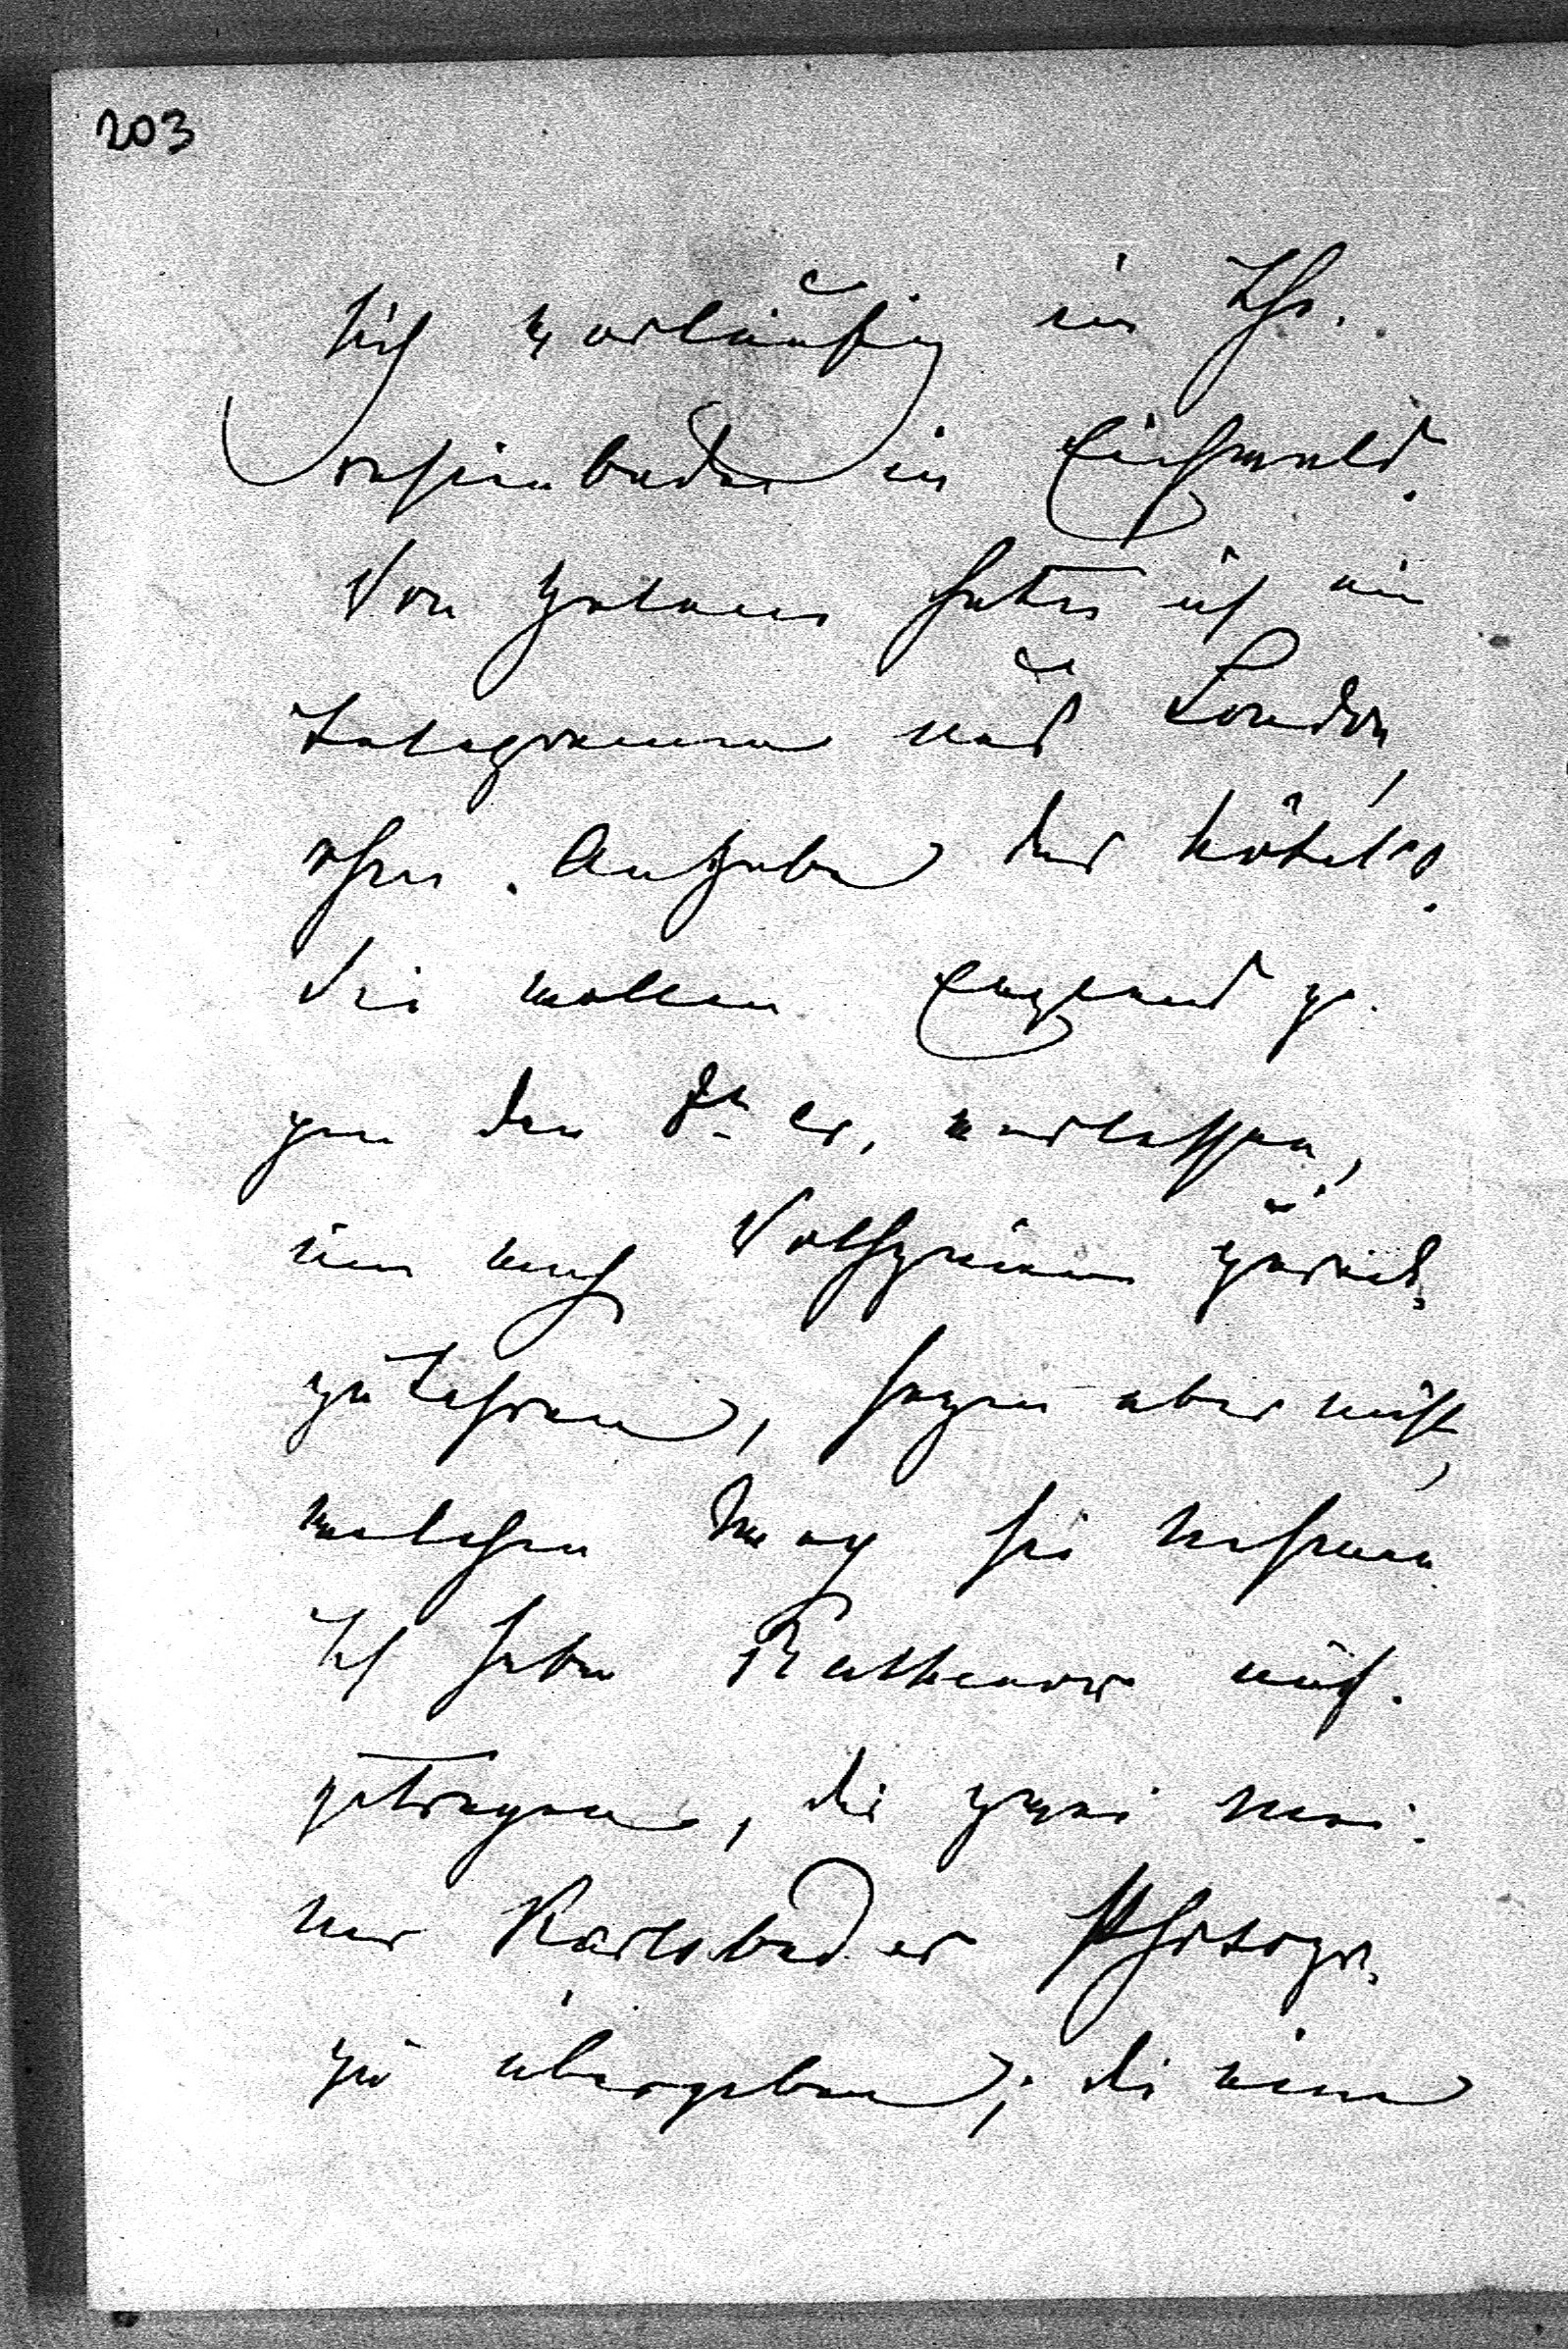 203
sich vorläufig im Th.
in Eichwald.
Von hatte ich ein
Telegramm aus London,
ohne Angabe des Hôtels.
Sie wollen England ge-
gen den 8ten cr. verlassen,
um nach Volhynien zurück-
zukehren, sagen aber nicht,
welchen Weg sie nehmen.
Ich habe Rathenow auf-
getragen, die zwei mei-
ner Karlsbader Photogr.
zu übergeben; die eine